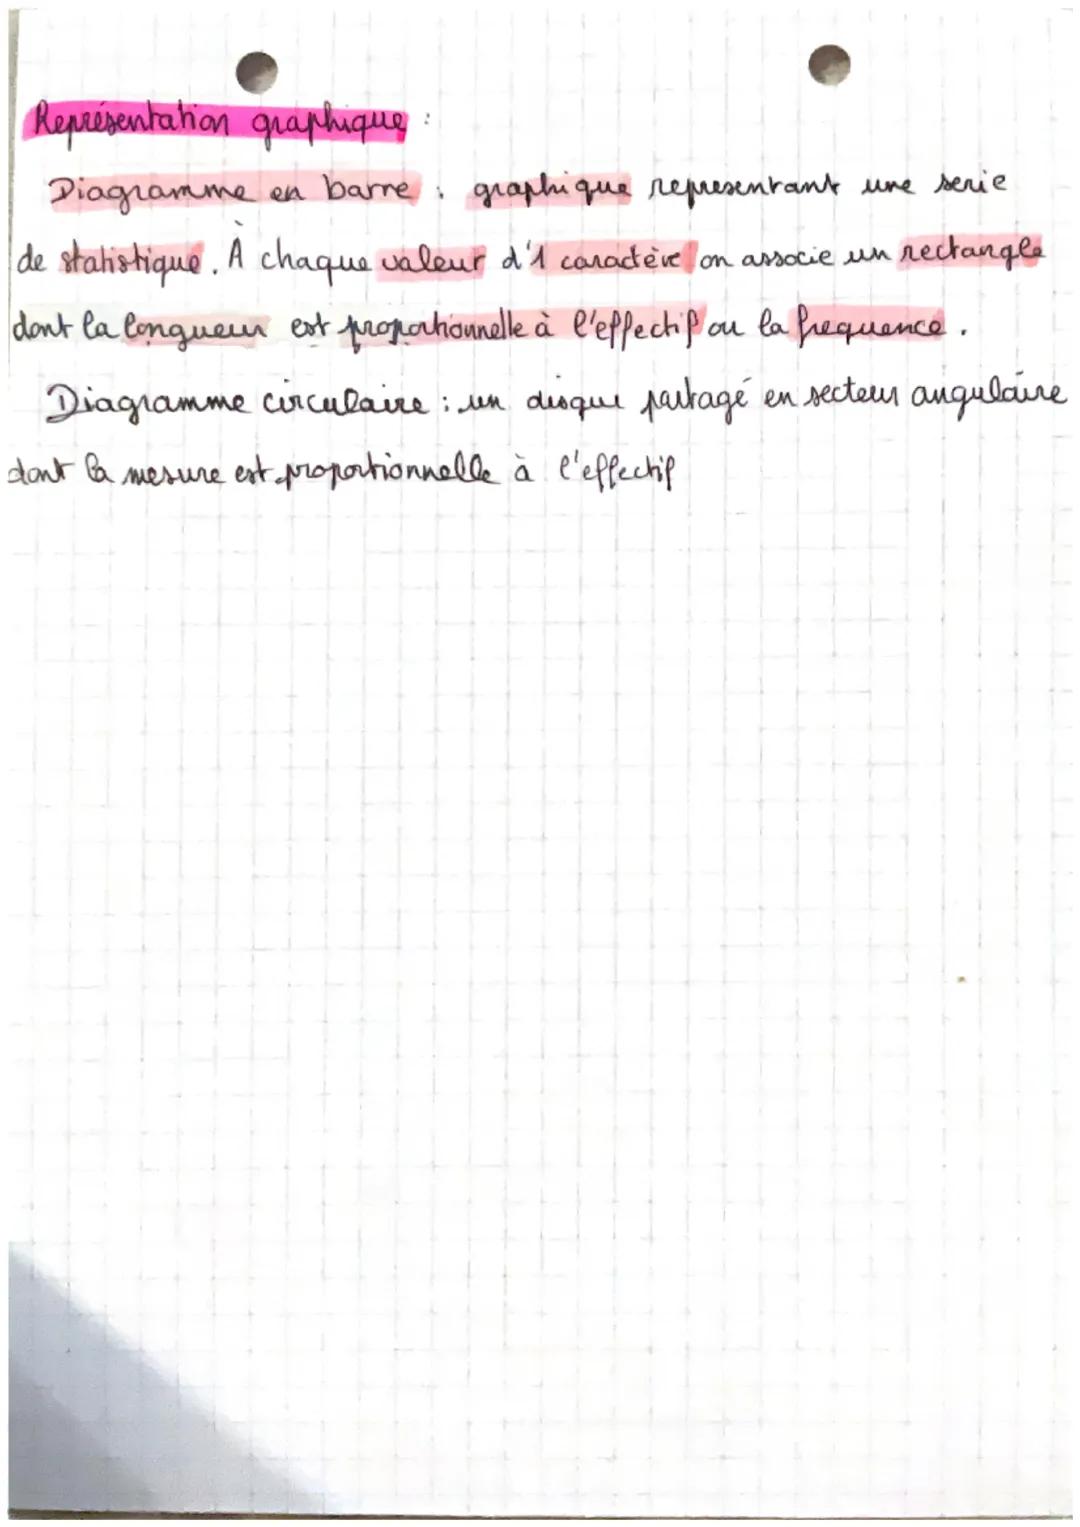 Représentation graphique :
Diagramme en barre : graphique representant une serie
de statistique. À chaque valeur d'1 caractère on associe un rectangle
dont la longueur est proportionnelle à l'effectif ou la frequence.
Diagramme circulaire : un disque partagé en secteur angulaire
dont la mesure est proportionnelle à l'effectif